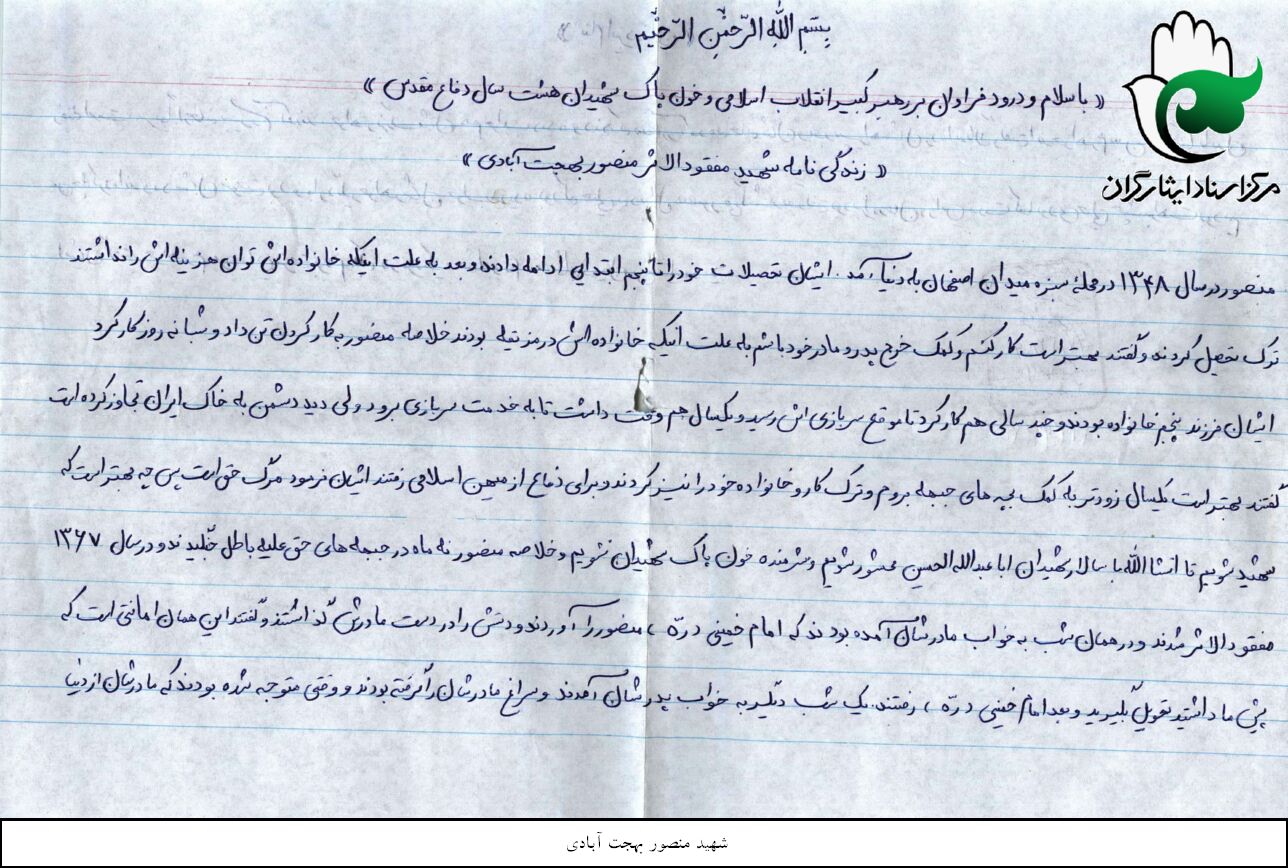 بسم الله الرّحمن الرّحیم
« با سلام و درود فراوان بر رهبر کبیر انقلاب اسلامی و خون پاک شهیدان هشت سال دفاع مقدس »
« زندگی نامه شهید مفقود الاثر منصور بهجت آبادی »
مرکز اسناد ایثارگران
منصور در سال ۱۳۴۸ در محلهٔ سبزه میدان اصفهان به دنیا آمد. ایشان تحصیلات خود را تا پنجم ابتدایی ادامه دادند و بعد به علت اینکه خانواده اش توان هزینه اش را نداشتند
ترک تحصیل کردند و گفتند بهتر است کار کنم و کمک خرج پدر و مادر خود باشم به علت اینکه خانواده اش در مزیقه بودند خلاصه منصور به کار کردن تن داد و شبانه روز کار کرد
ایشان فرزند پنجم خانواده بودند و چند سالی هم کار کرد تا موقع سربازی اش رسید و یکسال هم وقت داشت تا به خدمت سربازی برود ولی دید دشمن به خاک ایران تجاوز کرده است
گفتند بهتر است یکسال زودتر به کمک بچه های جبهه بروم و ترک کار و خانواده خود را نیز کردند و برای دفاع از میهن اسلامی رفتند ایشان فرمود مرگ حق است پس چه بهتر است که
شهید شویم تا انشا الله با سالار شهیدان ابا عبدالله الحسین محشور شویم و شرمنده خون پاک شهیدان نشویم و خلاصه منصور نه ماه در جبهه های حق علیه باطل جنگیدند و در سال ۱۳۶۷
مفقود الاثر شدند و در همان شب به خواب مادرشان آمده بودند که امام خمینی «ره» منصور را آوردند و دستش را در دست مادرش گذاشتند و گفتند این همان امانتی است که
پیش ما داشتید تحویل بگیرید و بعد امام خمینی «ره» رفتند. یک شب دیگر به خواب پدرشان آمدند و سراغ مادرشان را گرفته بودند و وقتی متوجه شده بودند که مادرشان از دنیا
شهید منصور بهجت آبادی